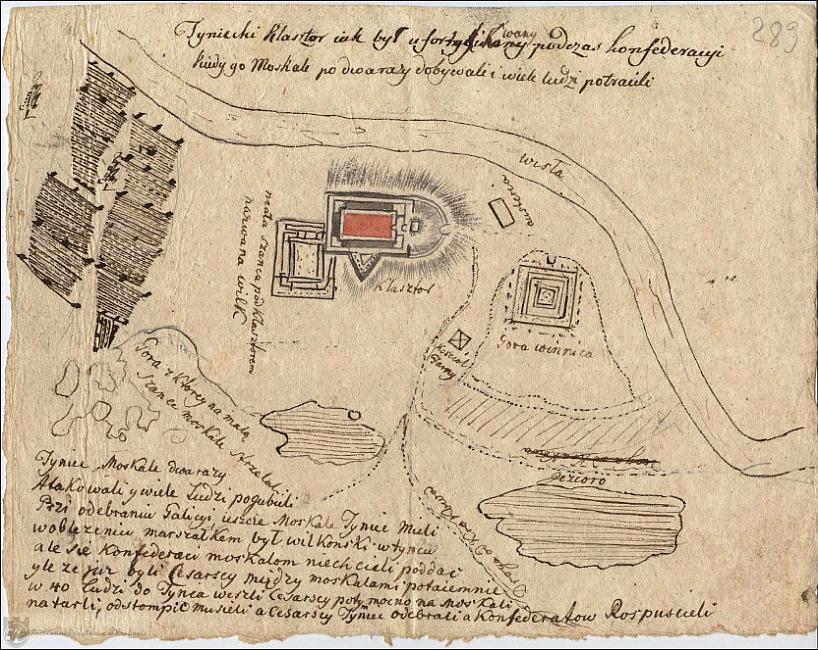 289
Tyniecki klasztor iak był ufortyfikowany podczas konfederacyi
kiedy go Moskale po dwa razy dobywali i wiele ludzi potracili
wisła
austeria
mała szańca pod klasztorem
nazwana wilk
klasztor
kościół
farny
Gora winnica
Gora z ktorey na małą
szańce moskale strzelali
jezioro
Droga od Krakowa
Tyniec Moskale dwa razy
Atakowali y wiele Ludzi pogubili
Przi odebraniu Galicyi ieszcze Moskale Tyniec mieli
w oblężeniu marszałkem był wilkonski w tyncu
ale się Konfederaci moskalom niechcieli poddać
yle ze juz byli Cesarscy między moskalami potaiemnie
w 40 Ludzi do Tynca weszli Cesarscy poty mocno na Moskali
natarli, odstompić musieli a Cesarscy Tyniec odebrali a Konfederatow Rospuscieli